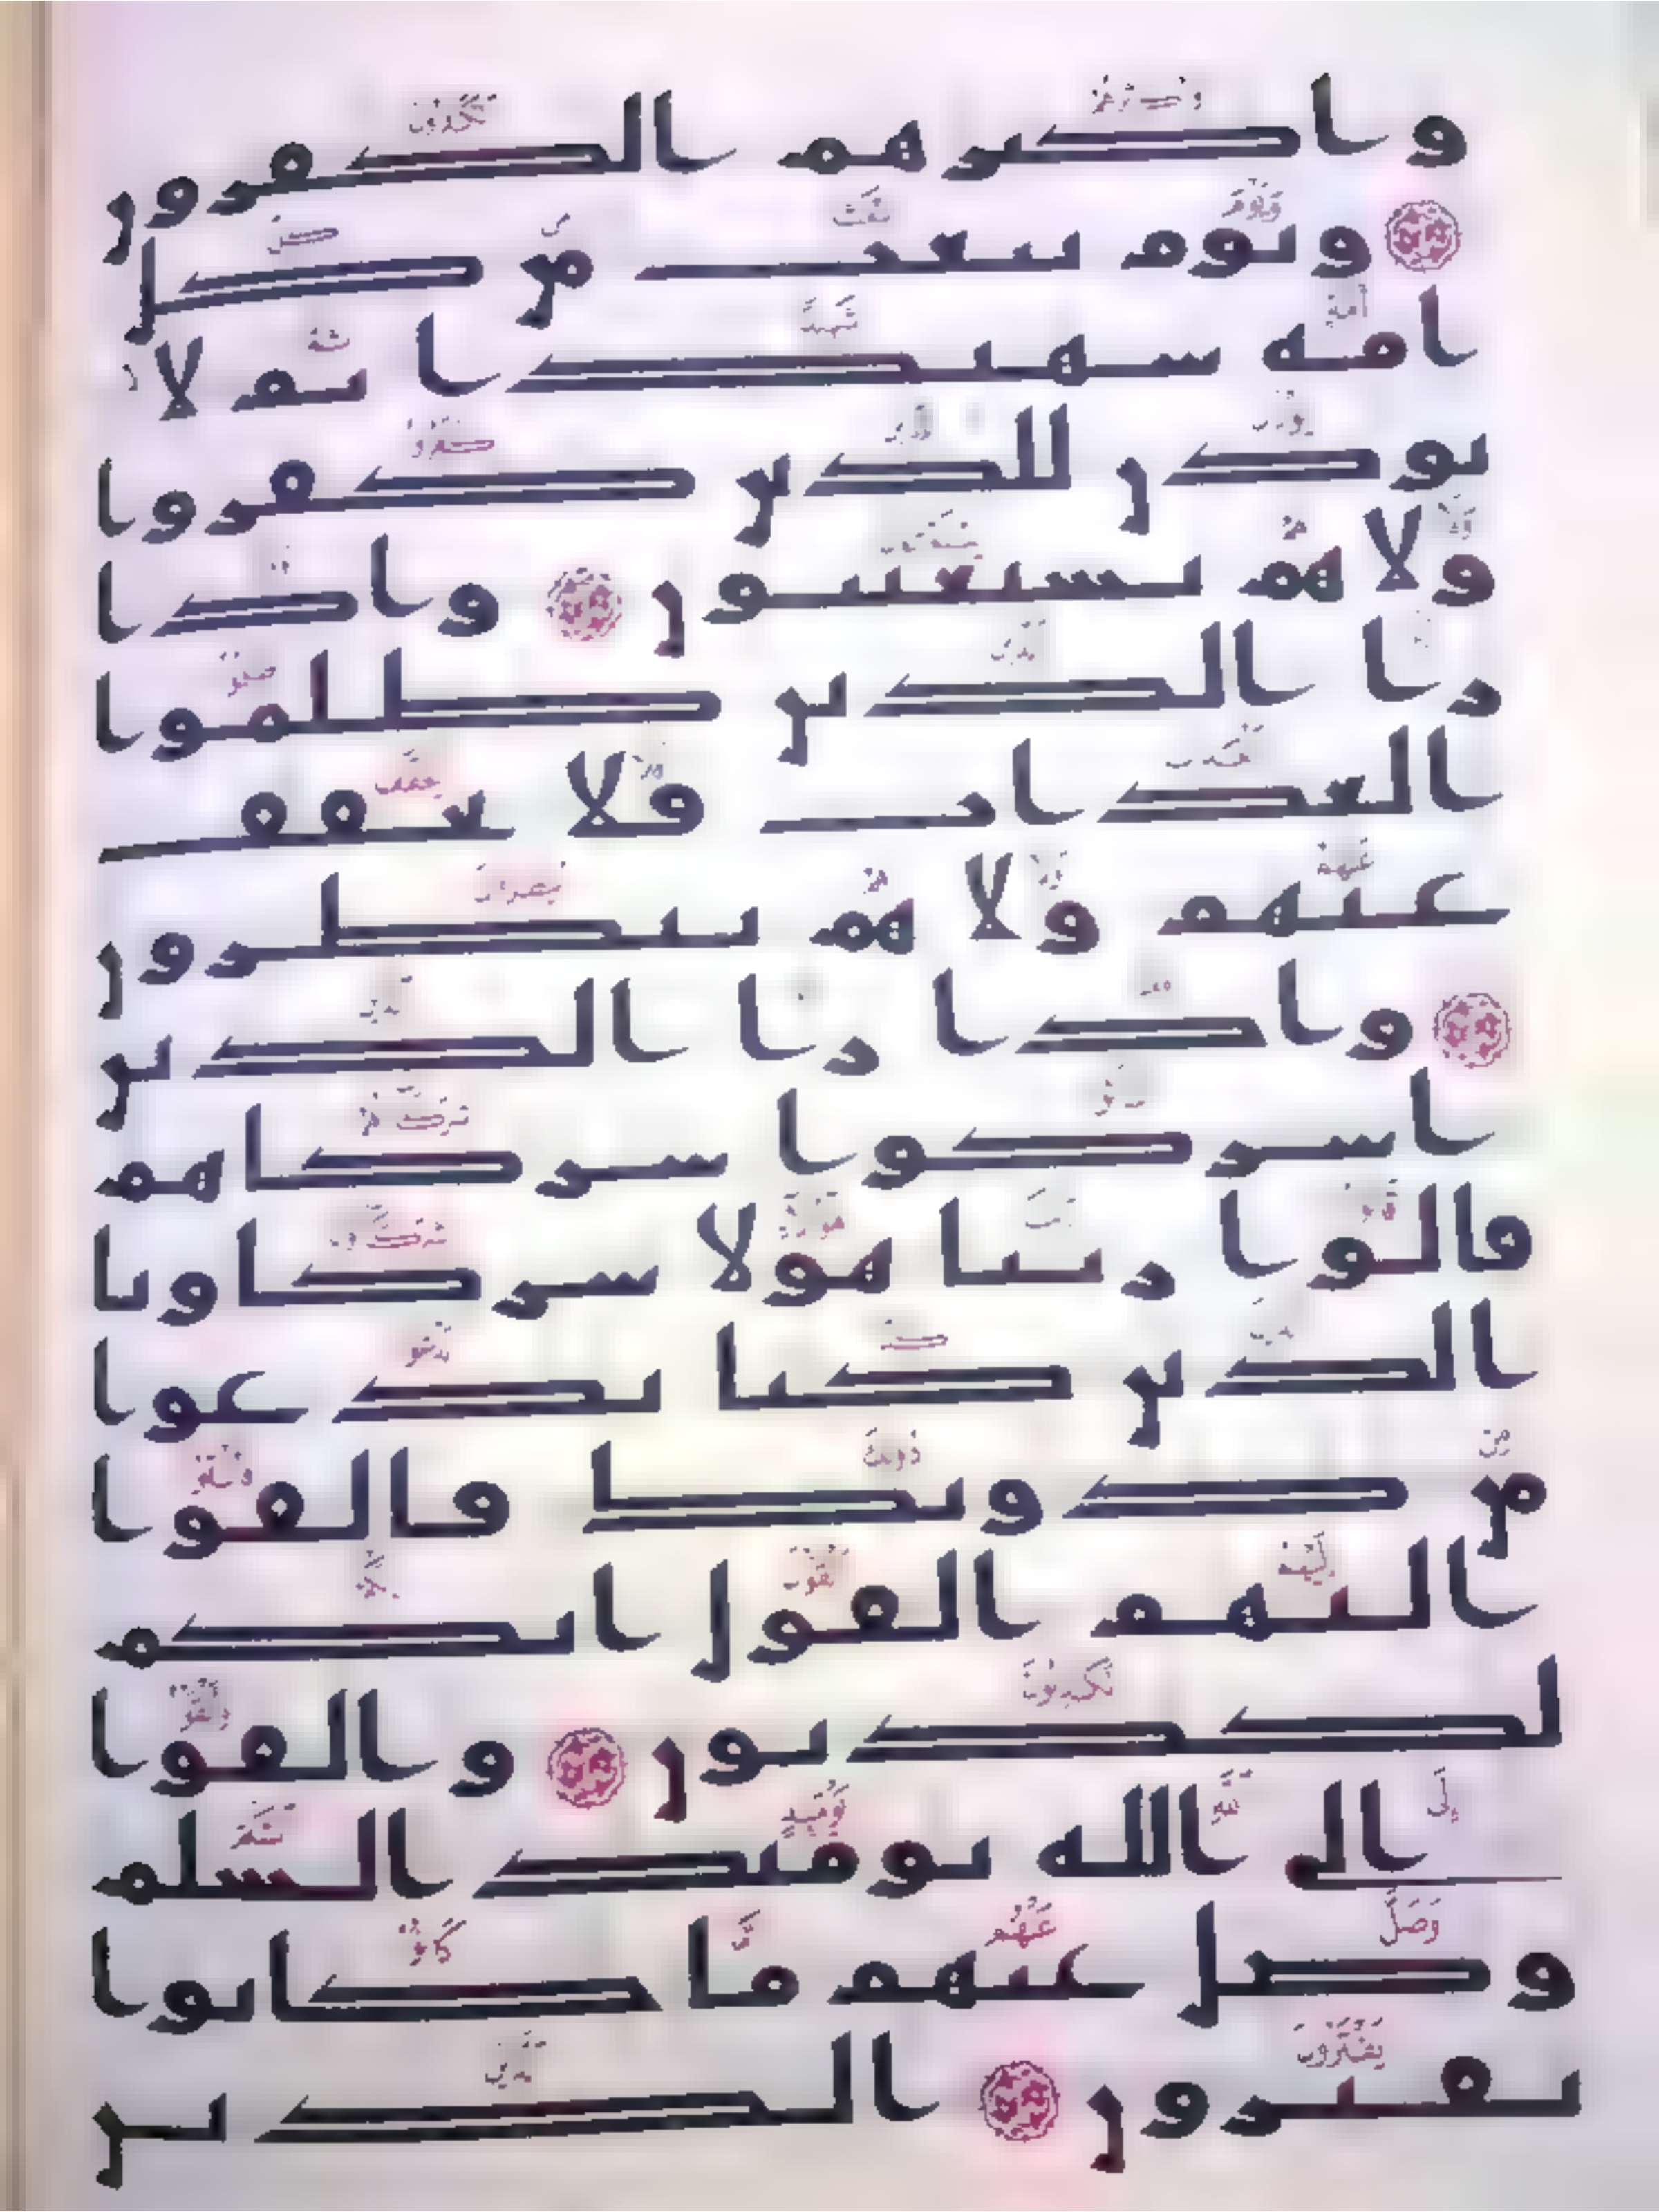 واكثرهم الكفرون
ويوم نبعث من كل
امه شهيدا ثم لا
يوذن للذين كفروا
ولا هم يستعتبون واذا
را الذين ظلموا
العذاب فلا يخفف
عنهم ولا هم ينظرون
واذا را الذين
اشركوا شركاهم
قالوا ربنا هولا شركاونا
الذين كنا ندعوا
من دونك فالقوا
اليهم القول انكم
لكذبون والقوا
الى الله يومئذ السلم
وضل عنهم ما كانوا
يفترون الذين